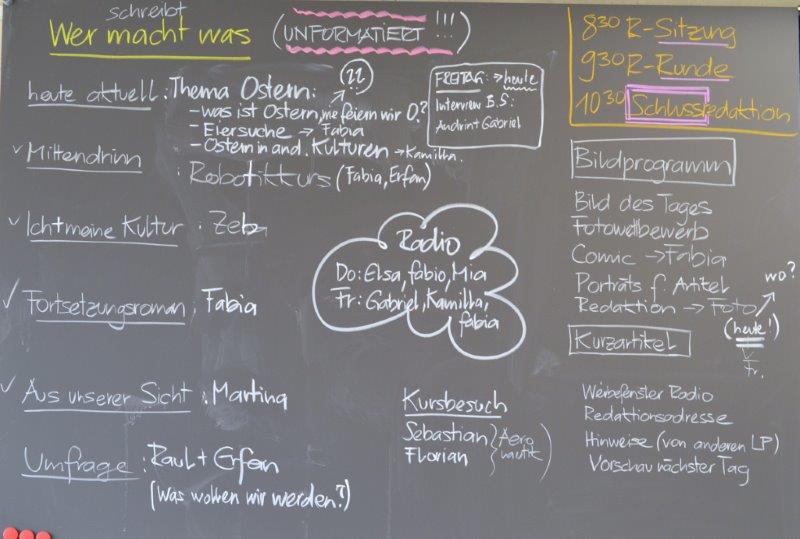 schreibt
Wer macht was (UNFORMATIERT !!!)
heute aktuell : Thema Ostern:
- was ist Ostern, wie feiern wir O.?
- Eiersuche → Fabia
- Ostern in and. Kulturen → Kamilla.
✓ Mittendrinn : Robotikkurs (Fabia, Erfan)
✓ Ich+meine Kultur : Zeb
✓ Fortsetzungsroman : Fabia
✓ Aus unserer Sicht : Martina
Umfrage : Raul + Erfan
(Was wollen wir werden?)
FREITAG: → heute
Interview B.S:
Andrint Gabriel
Radio
Do: Elsa, fabio, Mia
Fr: Gabriel, Kamilla,
fabia
Kursbesuch
Sebastian
Florian
Aero
nautic
8³⁰ R-Sitzung
9³⁰ R-Runde
10³⁰ Schlussredaktion
Bildprogramm
Bild des Tages
Fotowettbewerb
Comic → Fabia
Porträts f. Artikel
Redaktion → Foto
wo?
(heute!)
Fr.
Kurzartikel
Werbefenster Radio
Redaktionsadresse
Hinweise (von anderen LP)
Vorschau nächster Tag